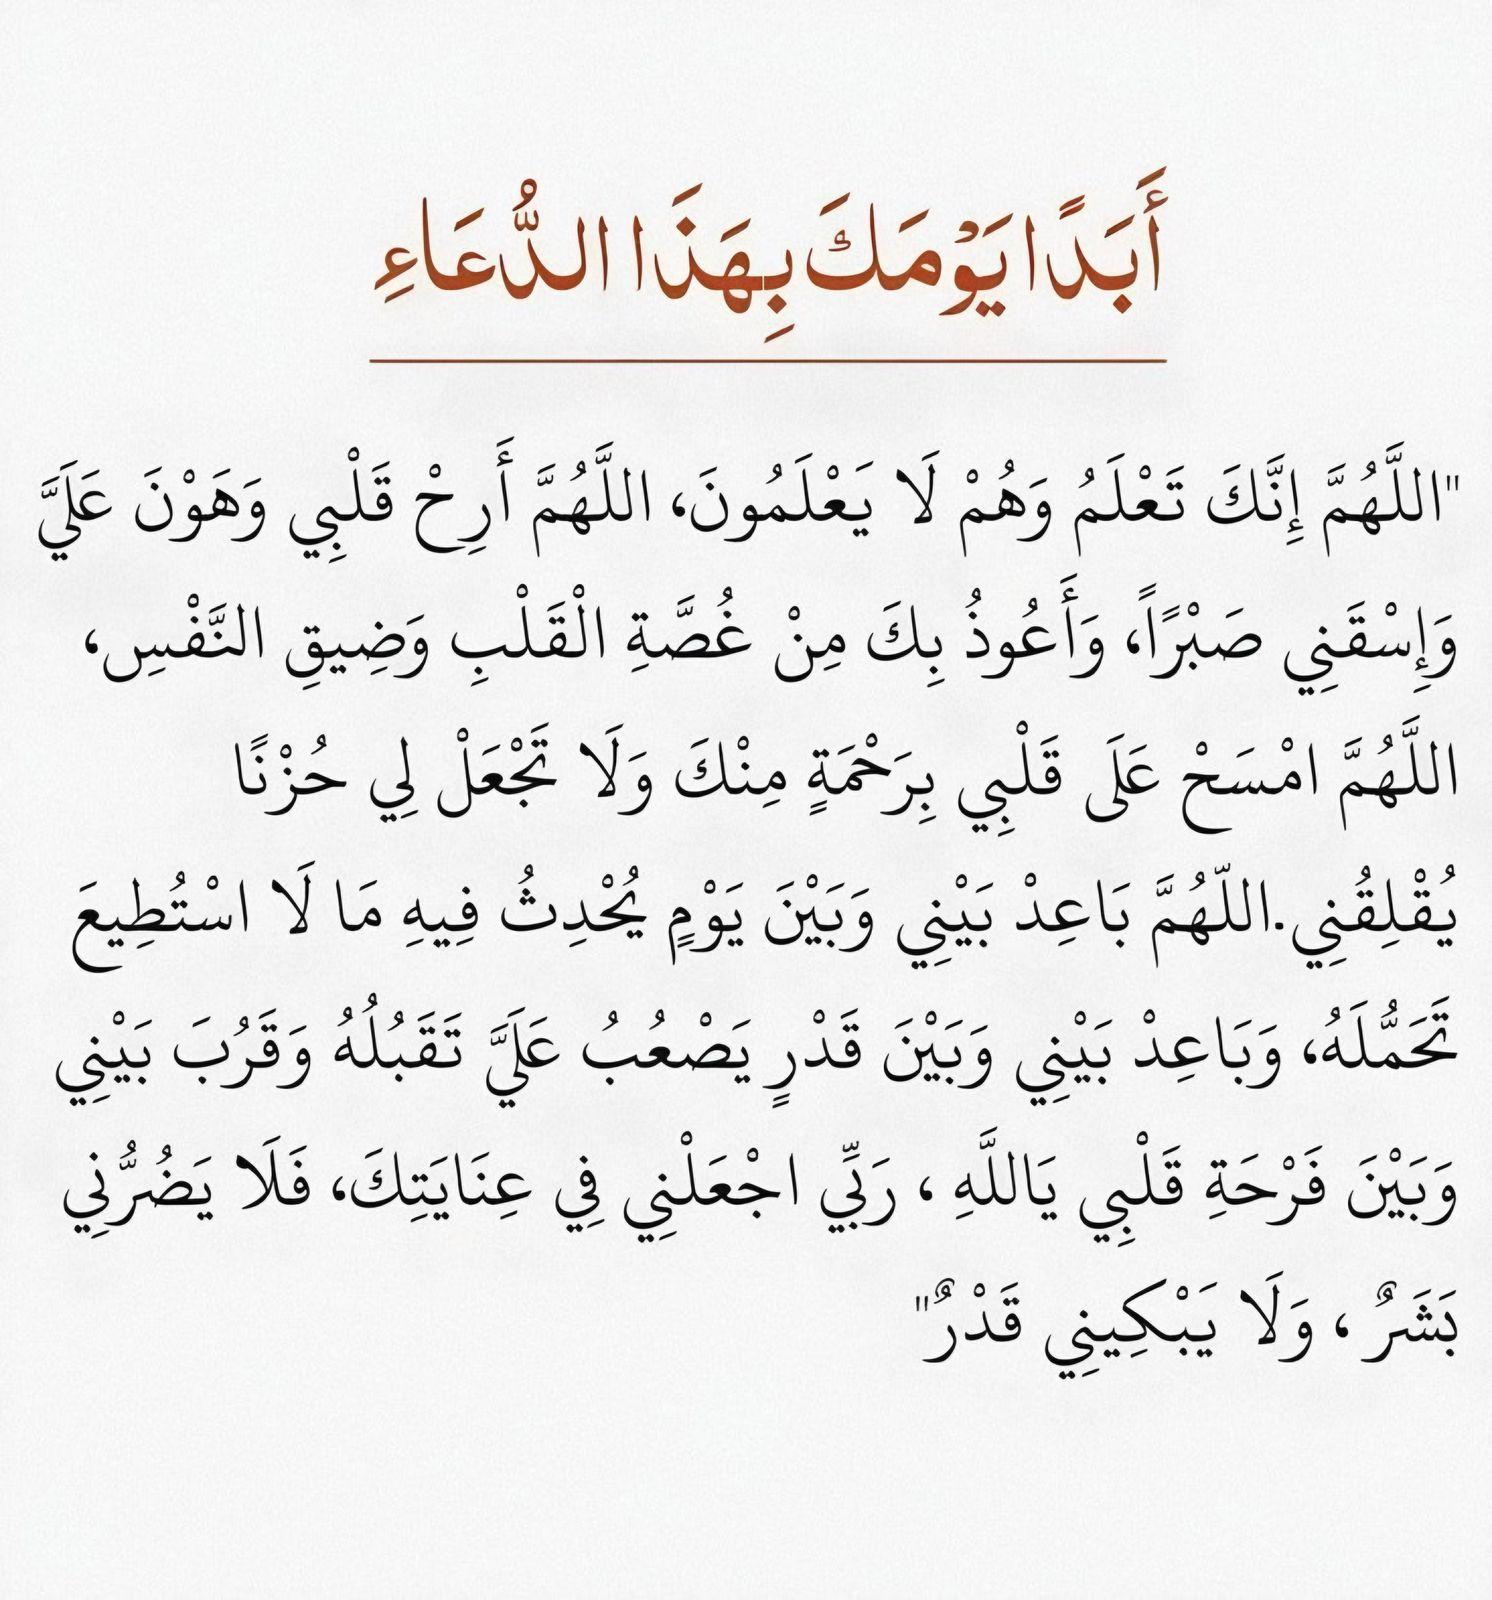 أَبَدًا يَوْمَكَ بِهَذَا الدُّعَاءِ
"اللَّهُمَّ إِنَّكَ تَعْلَمُ وَهُمْ لَا يَعْلَمُونَ، اللَّهُمَّ أَرِحْ قَلْبِي وَهَوْنَ عَلَيَّ
وَإِسْقَنِي صَبْرًاً، وَأَعُوذُ بِكَ مِنْ غُصَّةِ الْقَلْبِ وَضِيقِ النَّفْسِ،
اللَّهُمَّ امْسَحْ عَلَى قَلْبِي بِرَحْمَةٍ مِنْكَ وَلَا تَجْعَلْ لِي حُزْنًا
يُقْلِقُنِي.اللّهُمَّ بَاعِدْ بَيْنِي وَبَيْنَ يَوْمٍ يُحْدِثُ فِيهِ مَا لَا اسْتُطِيعَ
تَحَمُّلَهُ، وَبَاعِدْ بَيْنِي وَبَيْنَ قَدْرٍ يَصْعُبُ عَلَيَّ تَقَبُلُهُ وَقَرُبَ بَيْنِي
وَبَيْنَ فَرْحَةِ قَلْبِي يَاللَّهِ ، رَبِّي اجْعَلْنِي فِي عِنَايَتِكَ، فَلَا يَضُرُّنِي
بَشَرٌ ، وَلَا يَبْكِينِي قَدْرٌ"